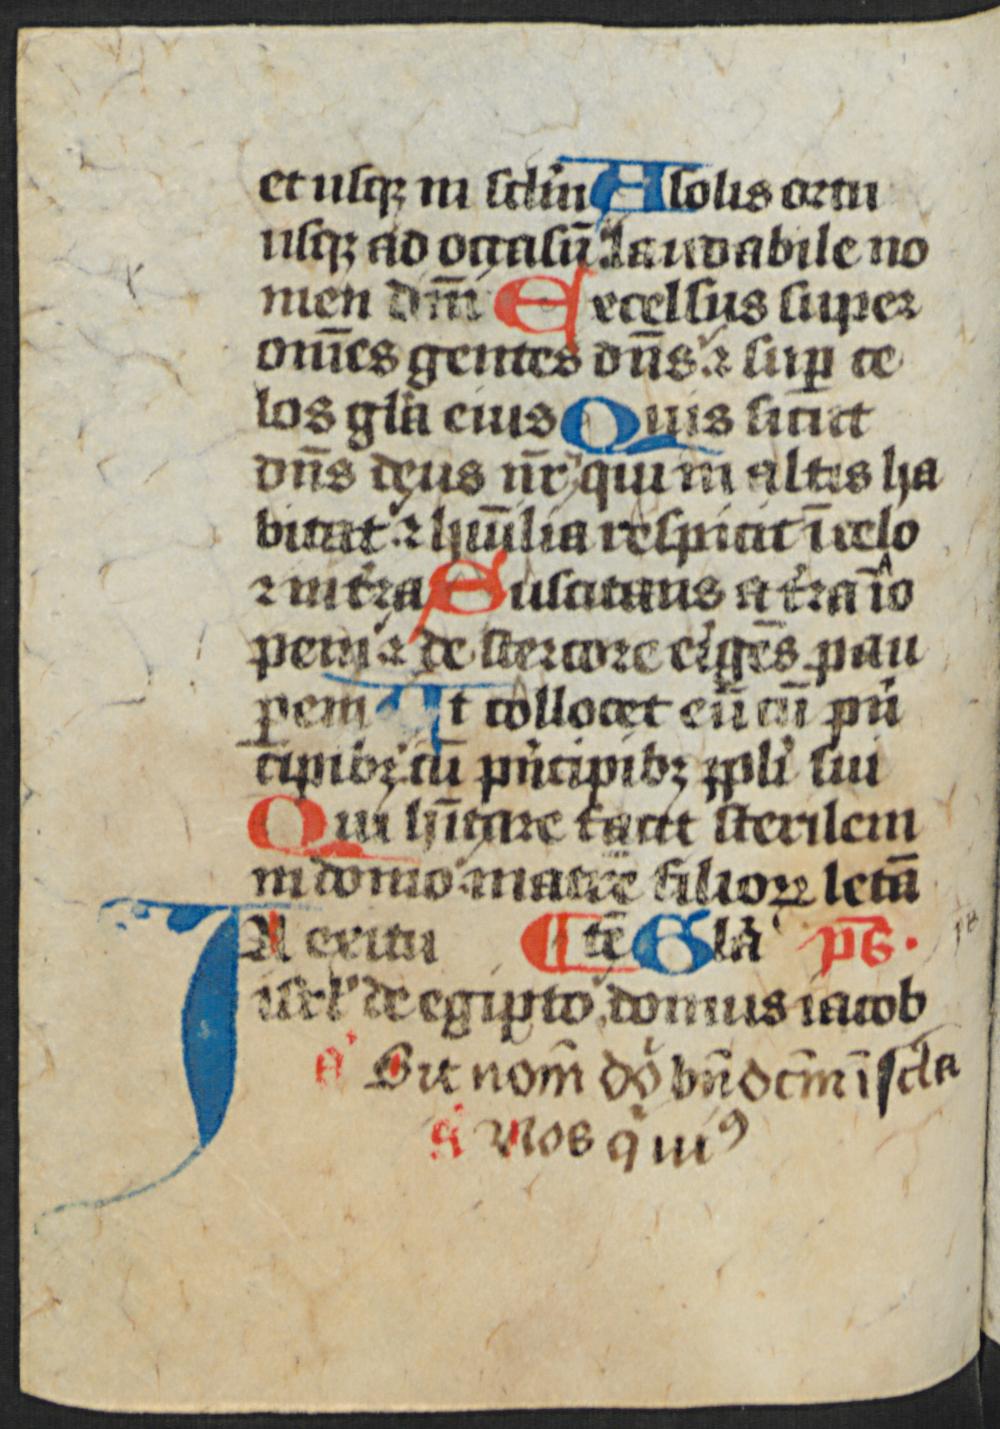 et usqꝫ in sclm̄ A solis ortu
usqꝫ ad occasū laudabile no
men dñi Excelsus super
om̄es gentes dñs ⁊ suꝑ ce
los gla eius Quis sicut
dñs deus nr̄ qui in altis ha
bitat ⁊ hūilia respicit ī celo
⁊ in tra Suscitans a tra īo
pem ⁊ de stercore erigēs pau
perem Ut collocet eū cū pn
cipibꝫ cū pncipibꝫ ppli sui
Qui hītare facit sterilem
in domo matrē filioꝝ letā
IN exitu tē Gla ps
isrl de egipto domus iacob
Sit nom̄ dō bn̄dcm ī scla
Nos qui